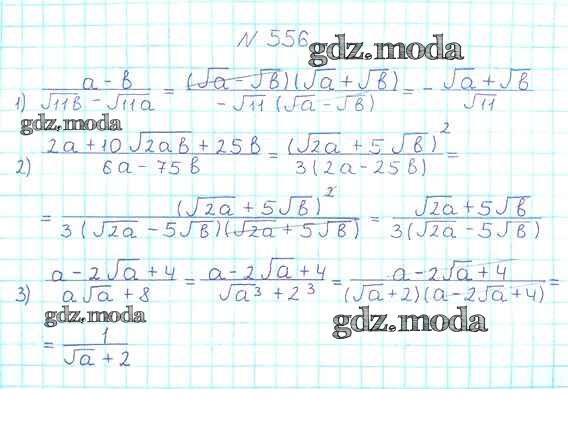 N 556
gdz.moda
1) (a - b)/(√11b - √11a) = ((√a - √b)(√a + √b))/(-√11 (√a - √b)) = - (√a + √b)/√11
gdz.moda
2) (2a + 10√2ab + 25b)/(6a - 75b) = (√2a + 5√b)²/(3(2a - 25b)) =
= (√2a + 5√b)²/(3(√2a - 5√b)(√2a + 5√b)) = (√2a + 5√b)/(3(√2a - 5√b))
3) (a - 2√a + 4)/(a√a + 8) = (a - 2√a + 4)/(√a³ + 2³) = (a - 2√a + 4)/((√a + 2)(a - 2√a + 4)) =
gdz.moda
gdz.moda
= 1/(√a + 2)